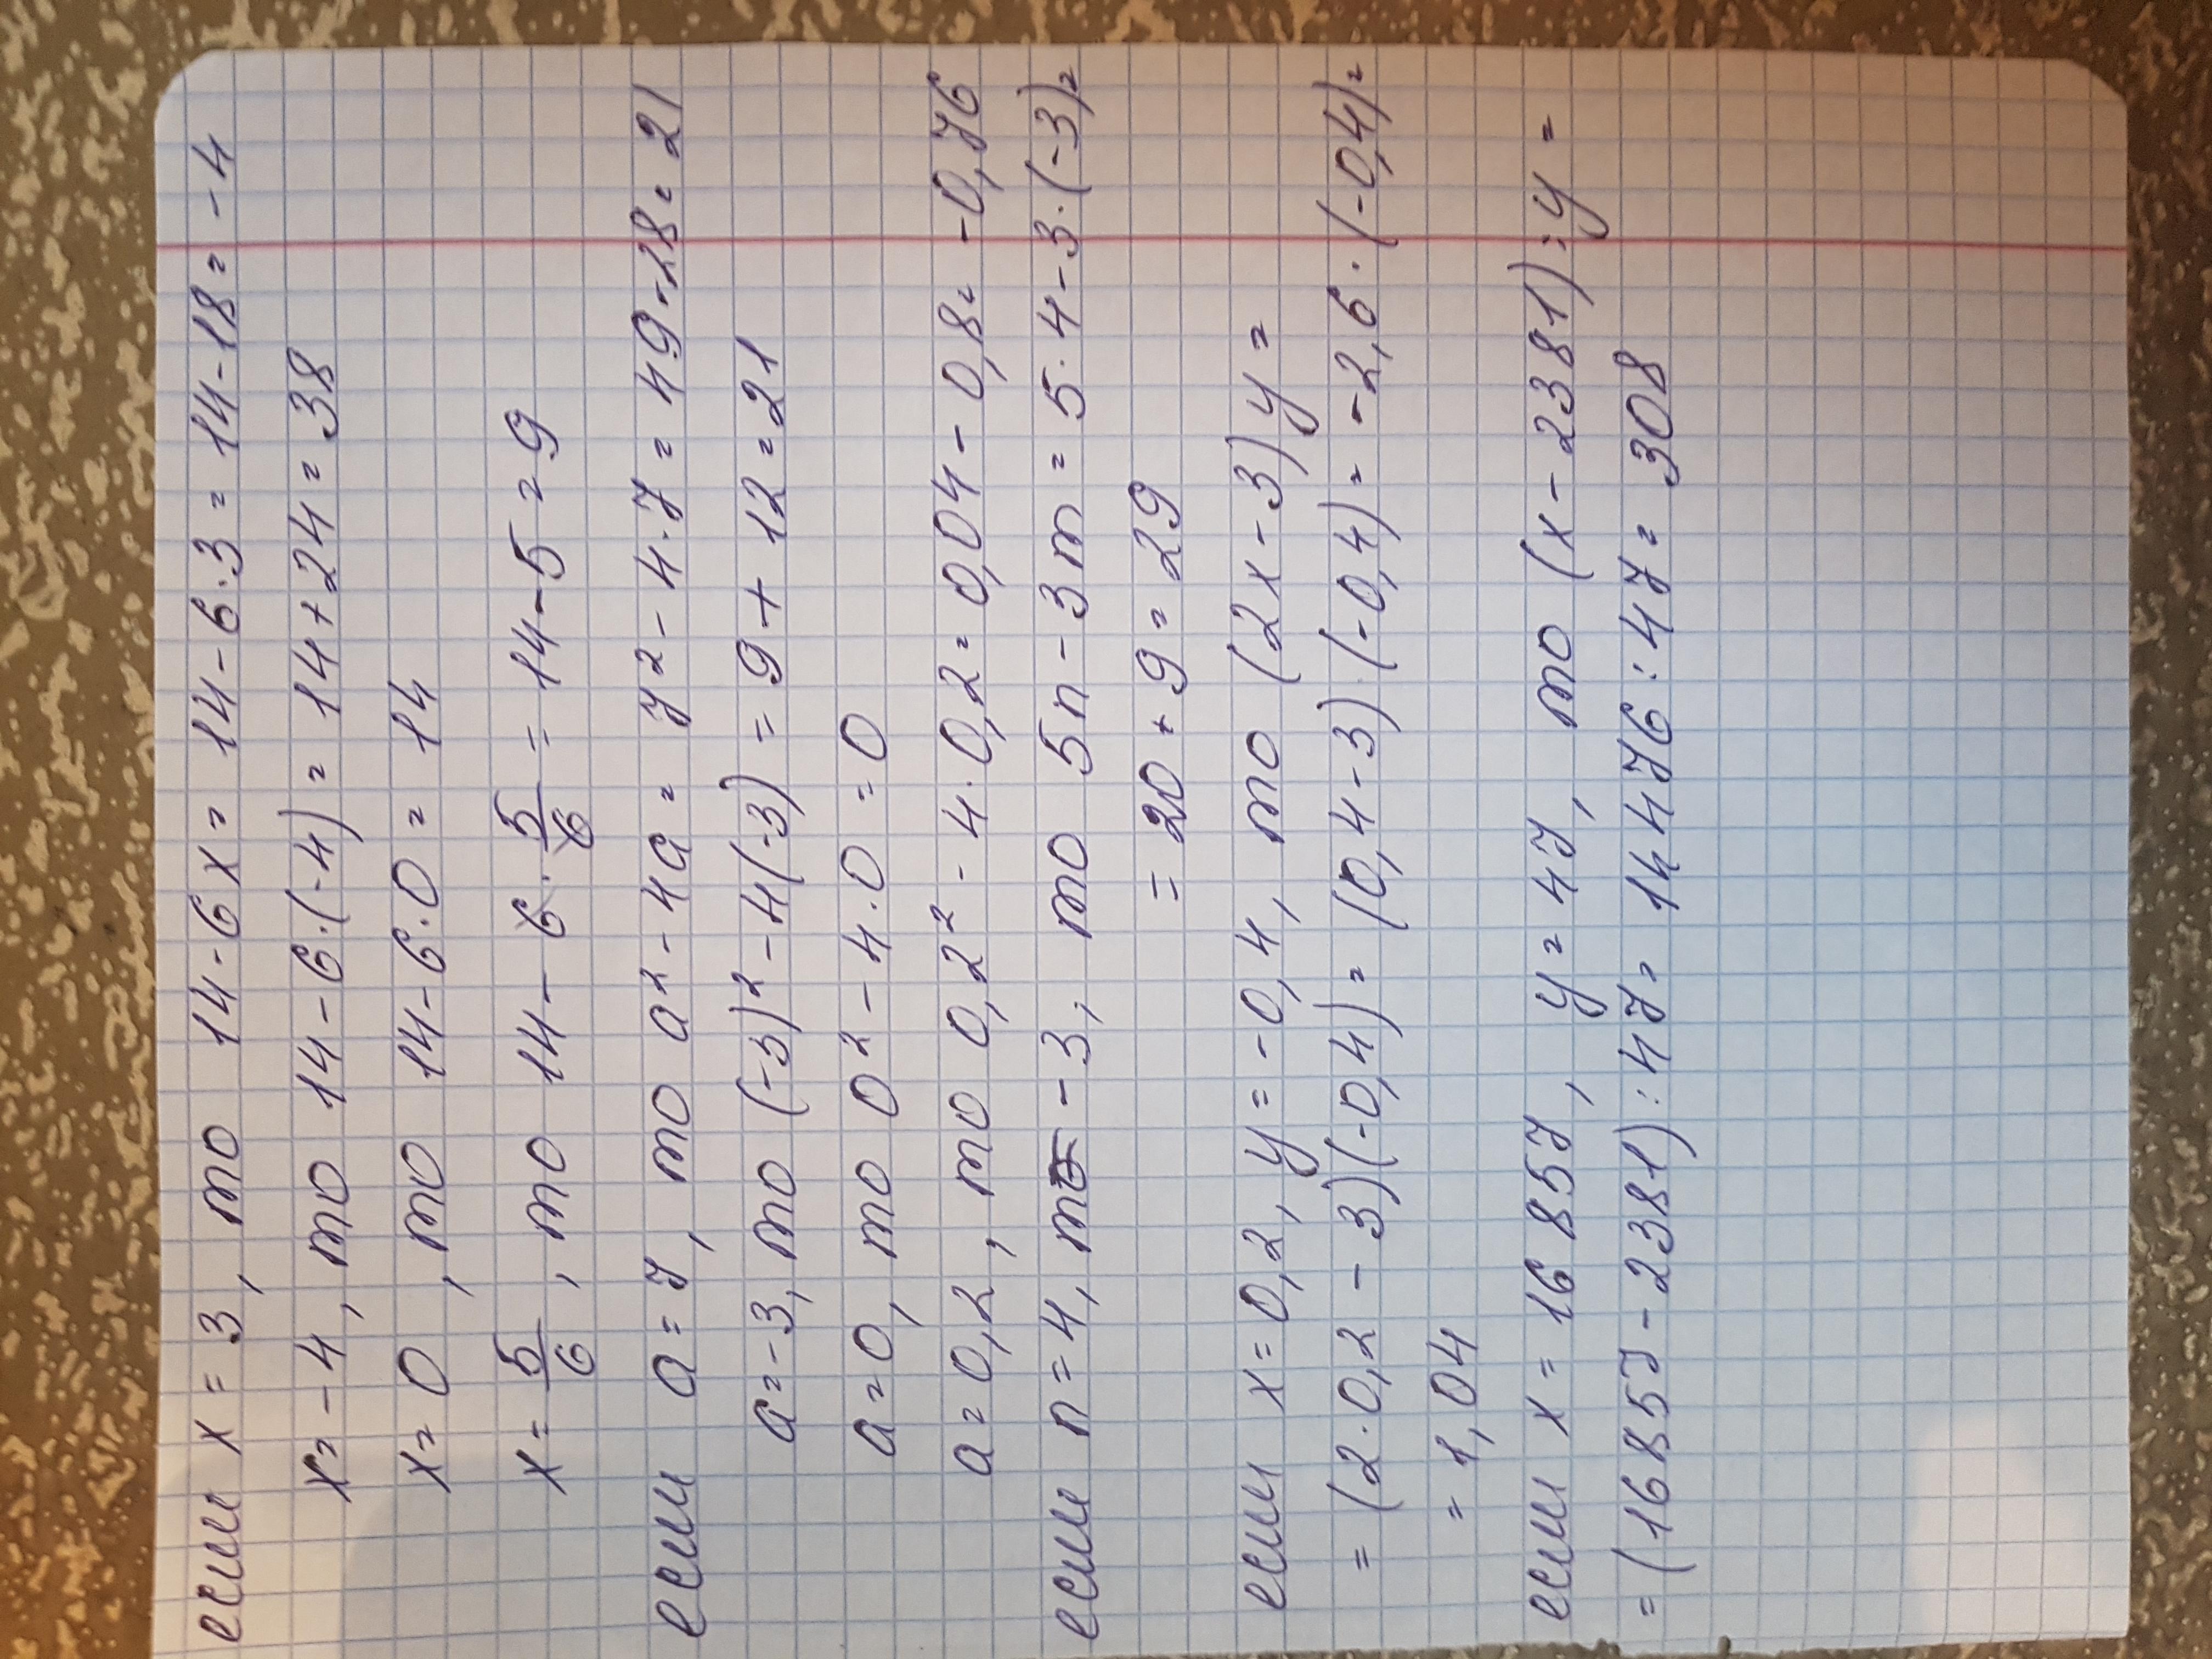 если x = 3, то 14 - 6x = 14 - 6·3 = 14 - 18 = - 4
x = - 4, то 14 - 6·(-4) = 14 + 24 = 38
x = 0, то 14 - 6·0 = 14
x = 5/6, то 14 - 6 · 5/6 = 14 - 5 = 9
если a = 7, то a² - 4a = 7² - 4·7 = 49 - 28 = 21
a = -3, то (-3)² - 4(-3) = 9 + 12 = 21
a = 0, то 0² - 4·0 = 0
a = 0,2, то 0,2² - 4·0,2 = 0,04 - 0,8 = -0,76
если n = 4, m= -3, то 5n - 3m = 5·4 - 3·(-3) =
= 20 + 9 = 29
если x = 0,2, y = -0,4, то (2x - 3)y =
= (2·0,2 - 3)(-0,4) = (0,4 - 3)·(-0,4) = -2,6·(-0,4) =
= 1,04
если x = 16 857, y = 47, то (x - 2381):y =
= (16857 - 2381):47 = 14476:47 = 308